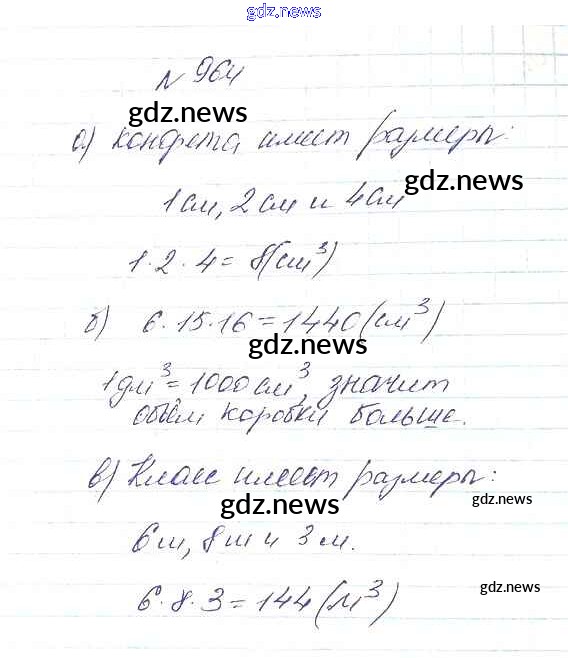 gdz.news
N 964
gdz.news
а) Конфета имеет размеры:
gdz.news
1 см, 2 см и 4 см
1·2·4 = 8(см³)
б) 6·15·16 = 1440 (см³)
gdz.news
1дм³ = 1000 см³, значит
объём коробки больше.
в) Класс имеет размеры:
gdz.news
gdz.news
6 м, 8 м и 3 м.
6·8·3 = 144 (м³)
gdz.news